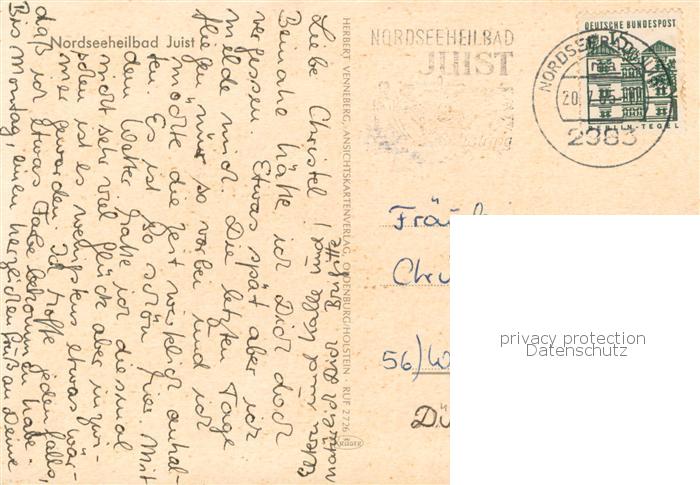 Nordseeheilbad Juist
Liebe Christel!
Beinahe hätte ich Dich doch
vergessen. Etwas spät aber ich
melde mich. Die letzten Tage
fliegen nur so vorbei und ich
möchte die Zeit wirklich anhal-
ten. Es ist so schön hier. Mit
dem Wetter hatte ich diesmal
nicht sehr viel Glück aber inzwi-
schen ist es wenigstens etwas wär-
mer geworden. Ich hoffe jedenfalls,
daß ich etwas Farbe bekommen habe.
Bis Montag, einen herzlichen Gruß an Deine
Eltern und Kolle und
möchte Dich Brigitte
HERBERT VENNEBERG, ANSICHTSKARTENVERLAG, OLDENBURG/HOLSTEIN · RUF 2726
KRÜGER
NORDSEEHEILBAD
JUIST
NORDSEEHEILBAD
20.7.65
2983
DEUTSCHE BUNDESPOST
BERLIN-TEGEL
Fräul
Chri
56) W
privacy protection
Datenschutz